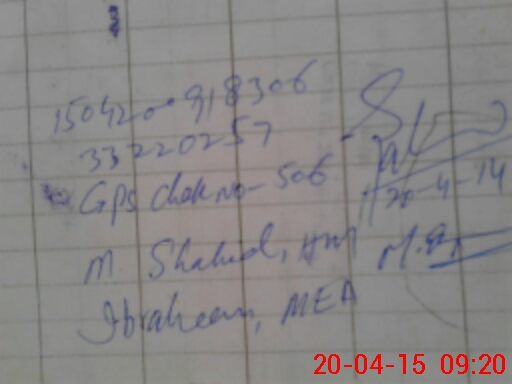 150420 918306
33220257
GPS chak no - 506
20-4-14
M. Shahid, HM
Ibraheem, MEA
20-04-15 09:20